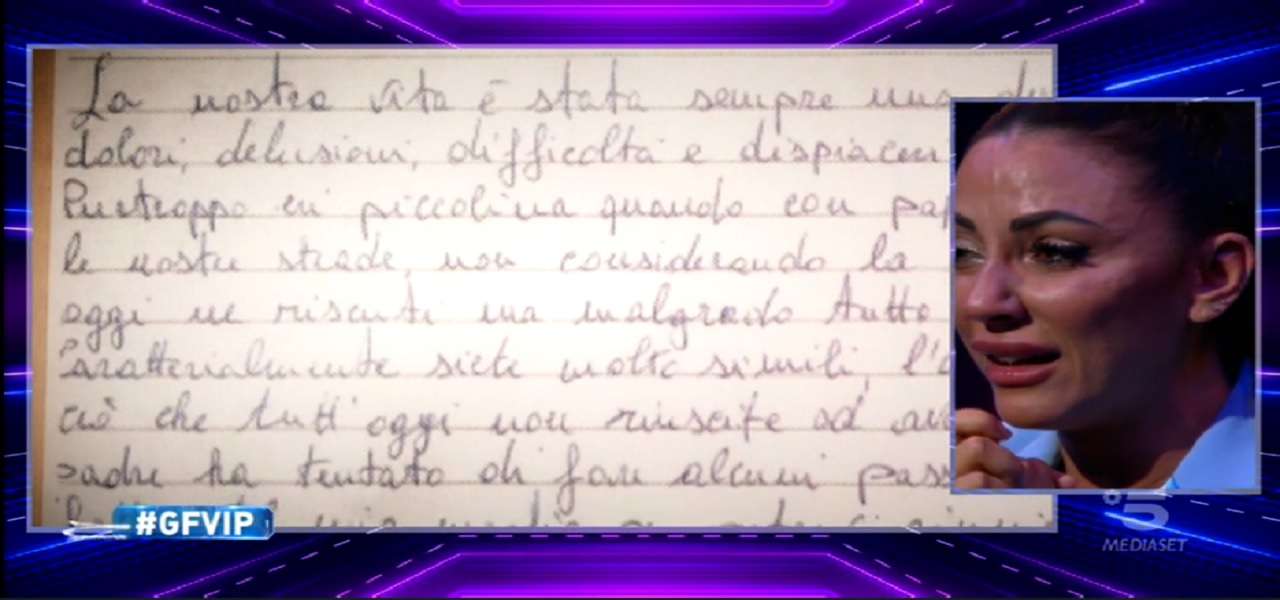 La nostra vita è stata sempre una
dolori, delusioni, difficoltà e dispiaceri
Purtroppo eri piccolina quando con pap
le nostre strade, non considerando la
oggi ne risenti ma malgrado tutto
Caratterialmente siete molto simili, l'a
ciò che tutt'oggi non riuscite ad av
padre ha tentato di fare alcuni pass
#GFVIP
5
MEDIASET